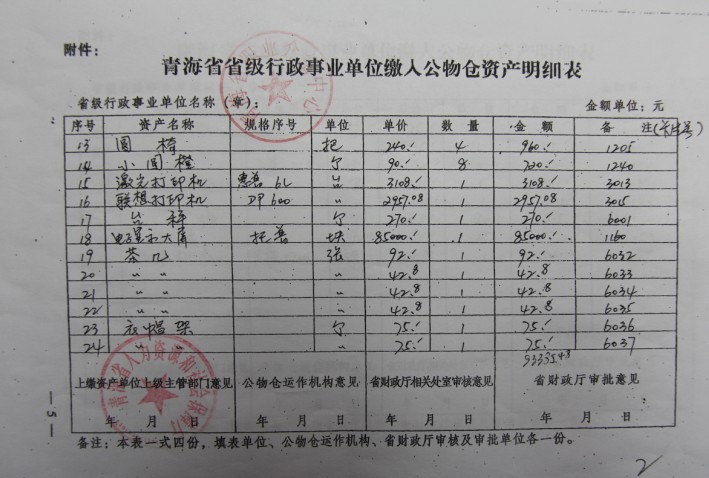 附件：
青海省省级行政事业单位缴入公物仓资产明细表
省级行政事业单位名称（章）： 金额单位：元
序号 资产名称 规格序号 单位 单价 数量 金额 备注（卡片号）
13 圆椅 把 240.- 4 960.- 1205
14 小圆橙 个 90.- 8 720.- 1240
15 激光打印机 惠普 6L 台 3108.- 1 3108.- 3013
16 联想打印机 DP600 〃 2957.08 1 2957.08 3015
17 台 个 270.- 1 270.- 6001
18 电子显示大屏 拓普 块 85000.- 1 85000.- 1160
19 茶几 张 92.- 1 92.- 6032
20 〃 〃 〃 42.8 1 42.8 6033
21 〃 〃 〃 42.8 1 42.8 6034
22 〃 〃 〃 42.8 1 42.8 6035
23 衣帽架 个 75.- 1 75.- 6036
24 〃 〃 75.- 1 75.- 6037
93335.48
上缴资产单位上级主管部门意见 公物仓运作机构意见 省财政厅相关处室审核意见 省财政厅审批意见
年 月 日 年 月 日 年 月 日 年 月 日
备注：本表一式四份，填表单位、公物仓运作机构、省财政厅审核及审批单位各一份。
— 5 —
2
青海省人力资源和社会保障厅